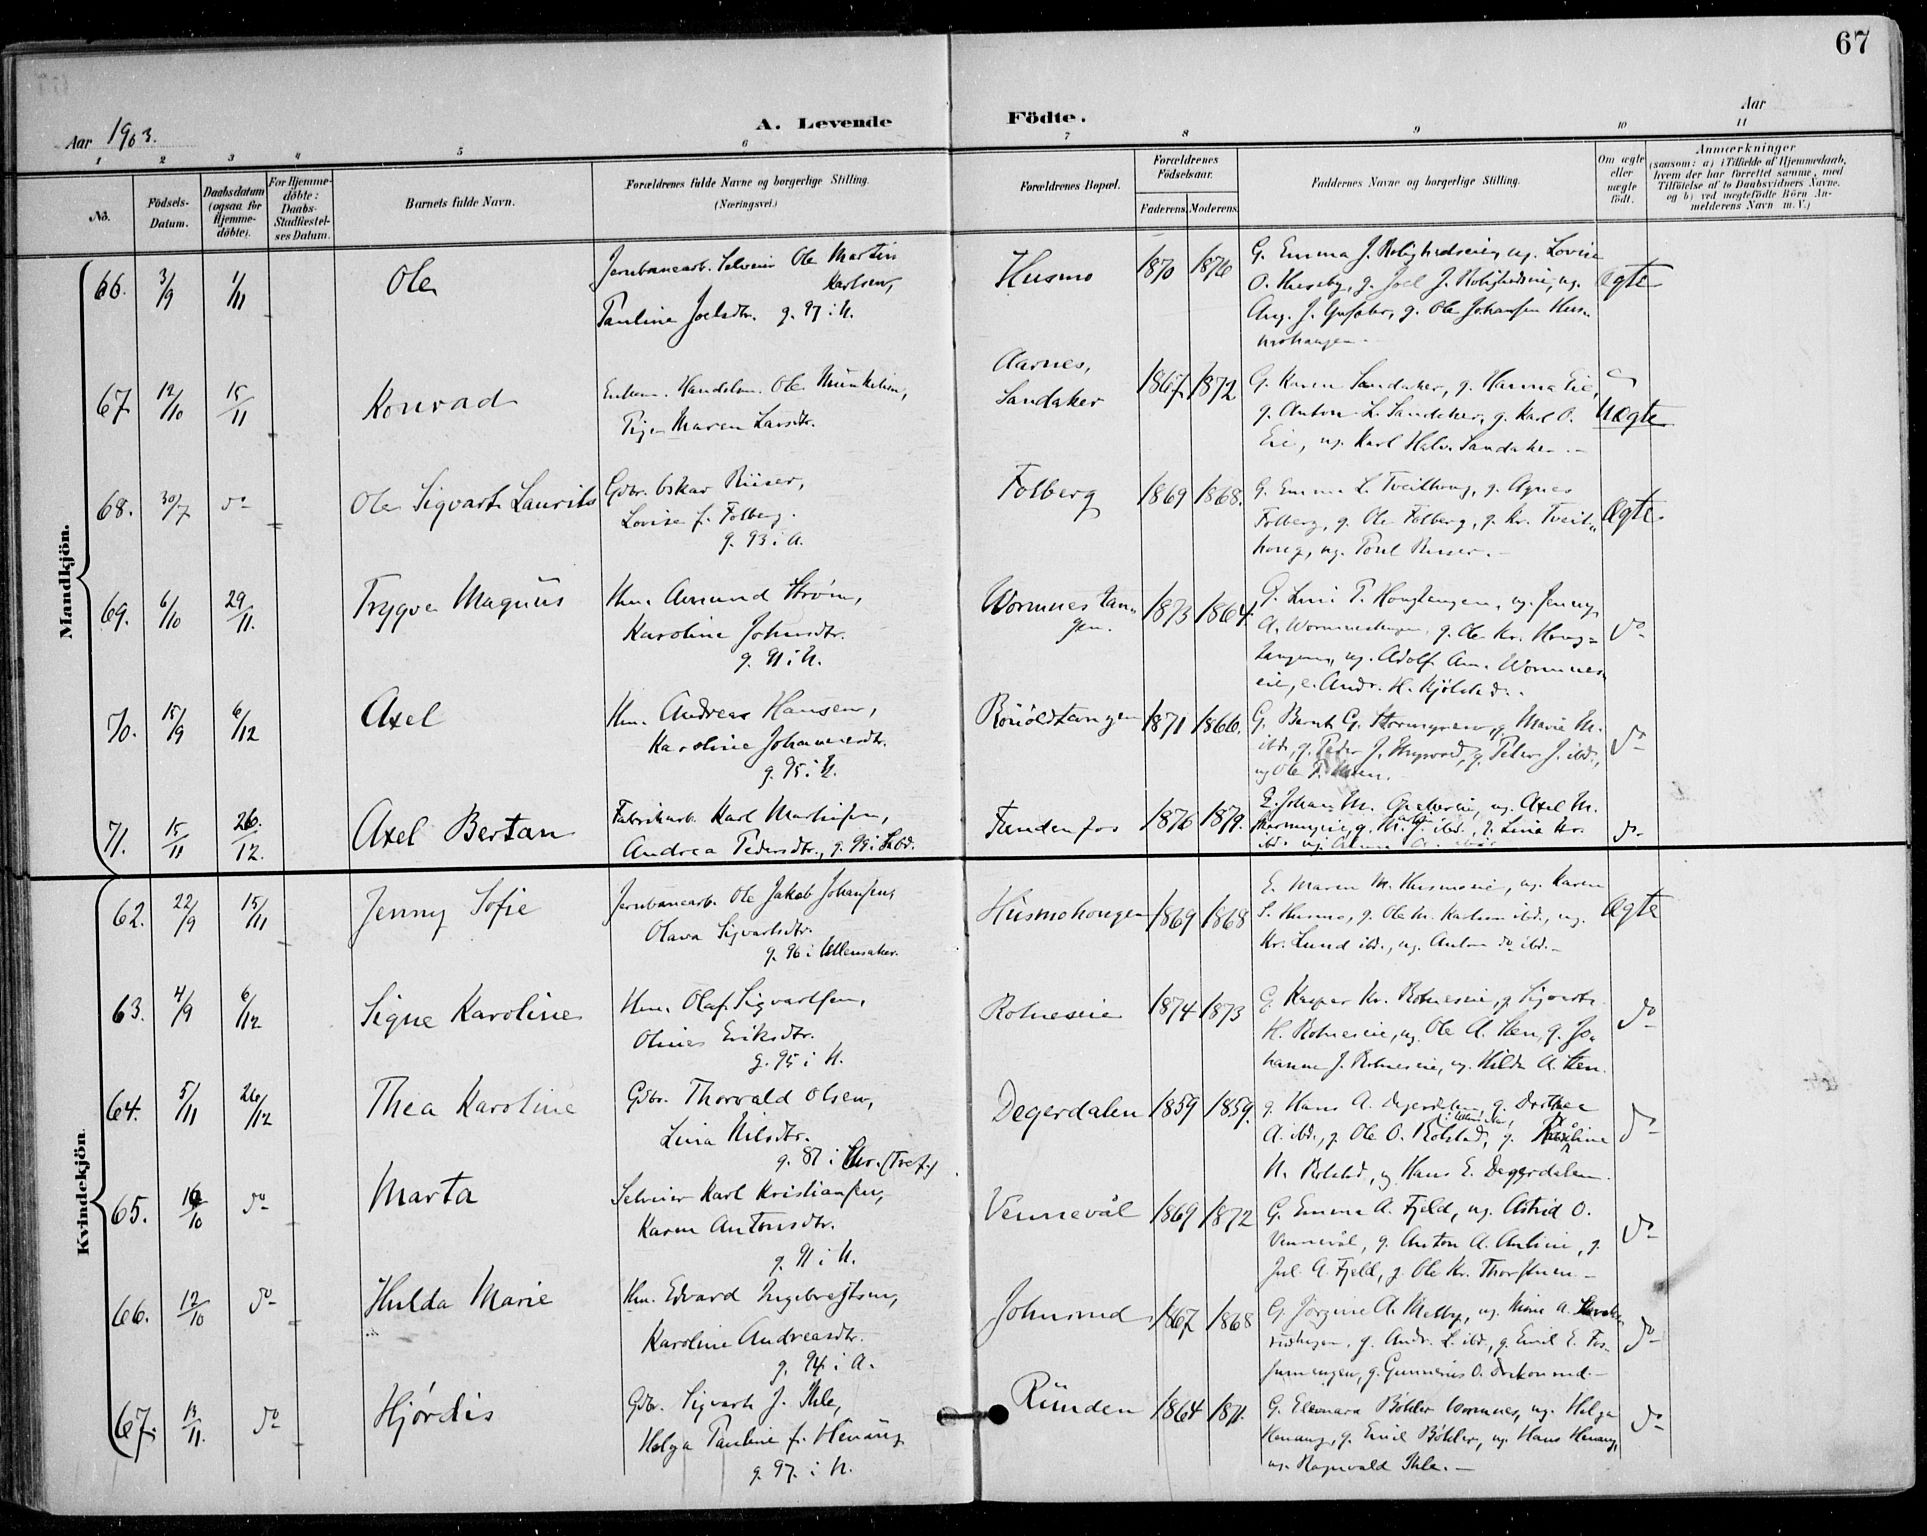 67
Aar 1903.
A. Levende Födte.
Aar
1 2 3 4 5 6 7 8 9 10 11
No.
Födsels-
Datum.
Daabsdatum
(ogsaa for
Hjemme-
döbte).
For Hjemme-
döbte:
Daabs-
Stadfæstel-
ses Datum.
Barnets fulde Navn.
Forældrenes fulde Navne og borgerlige Stilling.
(Næringsvei.)
Forældrenes Bopæl.
Forældrenes
Födselsaar.
Faderens. Moderens.
Faddernes Navne og borgerlige Stilling.
Om ægte
eller
uægte
födt.
Anmærkninger
(saasom: a) i Tilfælde af Hjemmedaab,
hvem der har forrettet samme, med
Tilföielse af to Daabsvidners Navne,
og b) ved uægtefödte Börn An-
melderens Navn m. V.)
Mandkjön.
66. 3/9 1/11 Ole
Jernbanearb. Selveier Ole Martin
Karlsen,
Pauline Joelsdtr. g. 97 i N.
Husmo 1870 1876
G. Emma J. Rolighedseie, ug. Lovise
O. Huseby, g. Joel J. Rolighedseie, ug.
Aug. J. g. Ole Johansen Hus-
mohaugen.
Ægte
67. 12/10 15/11 Konrad
Enkem. Handelsm. Ole Munkelien,
Pige Maren Larsdtr.
Aarnes,
Sandaker 1867 1872
G. Karen Sandaker, g. Hanna Eie,
g. Anton L. Sandaker, g. Karl O.
Eie, ug. Karl Halv. Sandaker.-
Uægte
68. 30/7 do Ole Sigvart Laurits
Gdbr. Oskar Riiser,
Lovise f. Folberg.
g. 93 i A.
Folberg 1869 1868.
G. Emma L. Tveithoug, g. Agnes
Folberg, g. Ole Folberg, g. Kr. Tveit-
houg, ug. Poul Riiser.-
Ægte
69. 6/10 29/11. Trygve Magnus
Hm. Amund Strøm,
Karoline Johnsdtr.
g. 91 i N.
Wormnestan-
gen. 1873 1864.
G. Lina T. Hougtangen, ug. Jenny
A. Wormnestangen, g. Ole Kr. Houg-
tangen, ug. Adolf Am. Wormnes-
eie, e. Andr. H. Kjølstad.
do
70. 15/9 6/12 Axel
Hm. Andreas Hansen,
Karoline Johannesdtr.
g. 95 i N.
1871 1866.
G. Bernt G. Stormyren, g. Marie M.
ibd., g. Peder J. g. Peter J. ibd.,
ug Ole P.
do
71. 15/11 26./12. Axel Bertan
Fabrikarb. Karl Martinsen,
Andrea Pedersdtr., g. 99 i
Funnefos 1876 1879.
G. Johan M. ug. Axel M.
g. ibd., g. Lina Kr.
ibd. ug.
do
Kvindekjön.
62. 22/9 15/11 Jenny Sofie
Jernbanearb. Ole Jakob Johansen,
Olava Sigvartsdtr.
g. 96 i Ullensaker.
Husmohougen 1869 1868
E. Maren M. Husmoeie, ug. Karen
S. Husmo, g. Ole M. Karlsen ibd., ug.
Kr. Lund ibd., ug. Anton do ibd.-
Ægte
63. 4/9 6/12 Signe Karoline
Hm. Olaf Sigvartsen,
Oline Eriksdtr.
g. 95 i N.
Rotneseie 1874 1873
G. Kasper Kr. Rotneseie, g. Sigvart
H. Rotneseie, ug. Ole A. Hen, g. Jo-
hanne J. Rotneseie, ug. Hilda A. Hen.
do
64. 5/11 26/12 Thea Karoline
Gdbr. Thorvald Olsen,
Lina Nilsdtr.
g. 87 i
Degerdalen 1859 1859.
g. Hans A. Degerdalen, g. Dorthea
A. ibd., g. Ole O. Rolstad, g. Karoline
N. Rolstad, g. Hans E. Degerdalen.
do
65. 16/10 do Marta
Selveier Karl Kristiansen,
Karen Antonsdtr.
g. 91 i N.
Vennevål 1869 1872
G. Emma A. Fjeld, ug. Astrid O.
Vennevål, g. Anton A. g.
Jul. A. Fjeld, g. Ole Kr. Thorstuen.-
do
66. 12/10 do Hulda Marie
Hm. Edvard Ingebretsen,
Karoline Andreasdtr.
g. 94 i A.
Johnsrud 1867 1868
G. Jørgine A. Melby, ug. A.
g. Andr. L. ibd., g. Emil E. Fos-
g. Gunnerius O.
do
67. 13/11. do Hjørdis
Gdbr. Sigvart J. Ihle,
Helga Pauline f. Henæng
g. 97. i N.
Runden 1864 1871.
G. Eleonara Bøhler Wormnes, ug. Helga
Henæng, g. Emil Bøhler, ug. Hans Henæng,
ug. Ragnvald Ihle.-
do